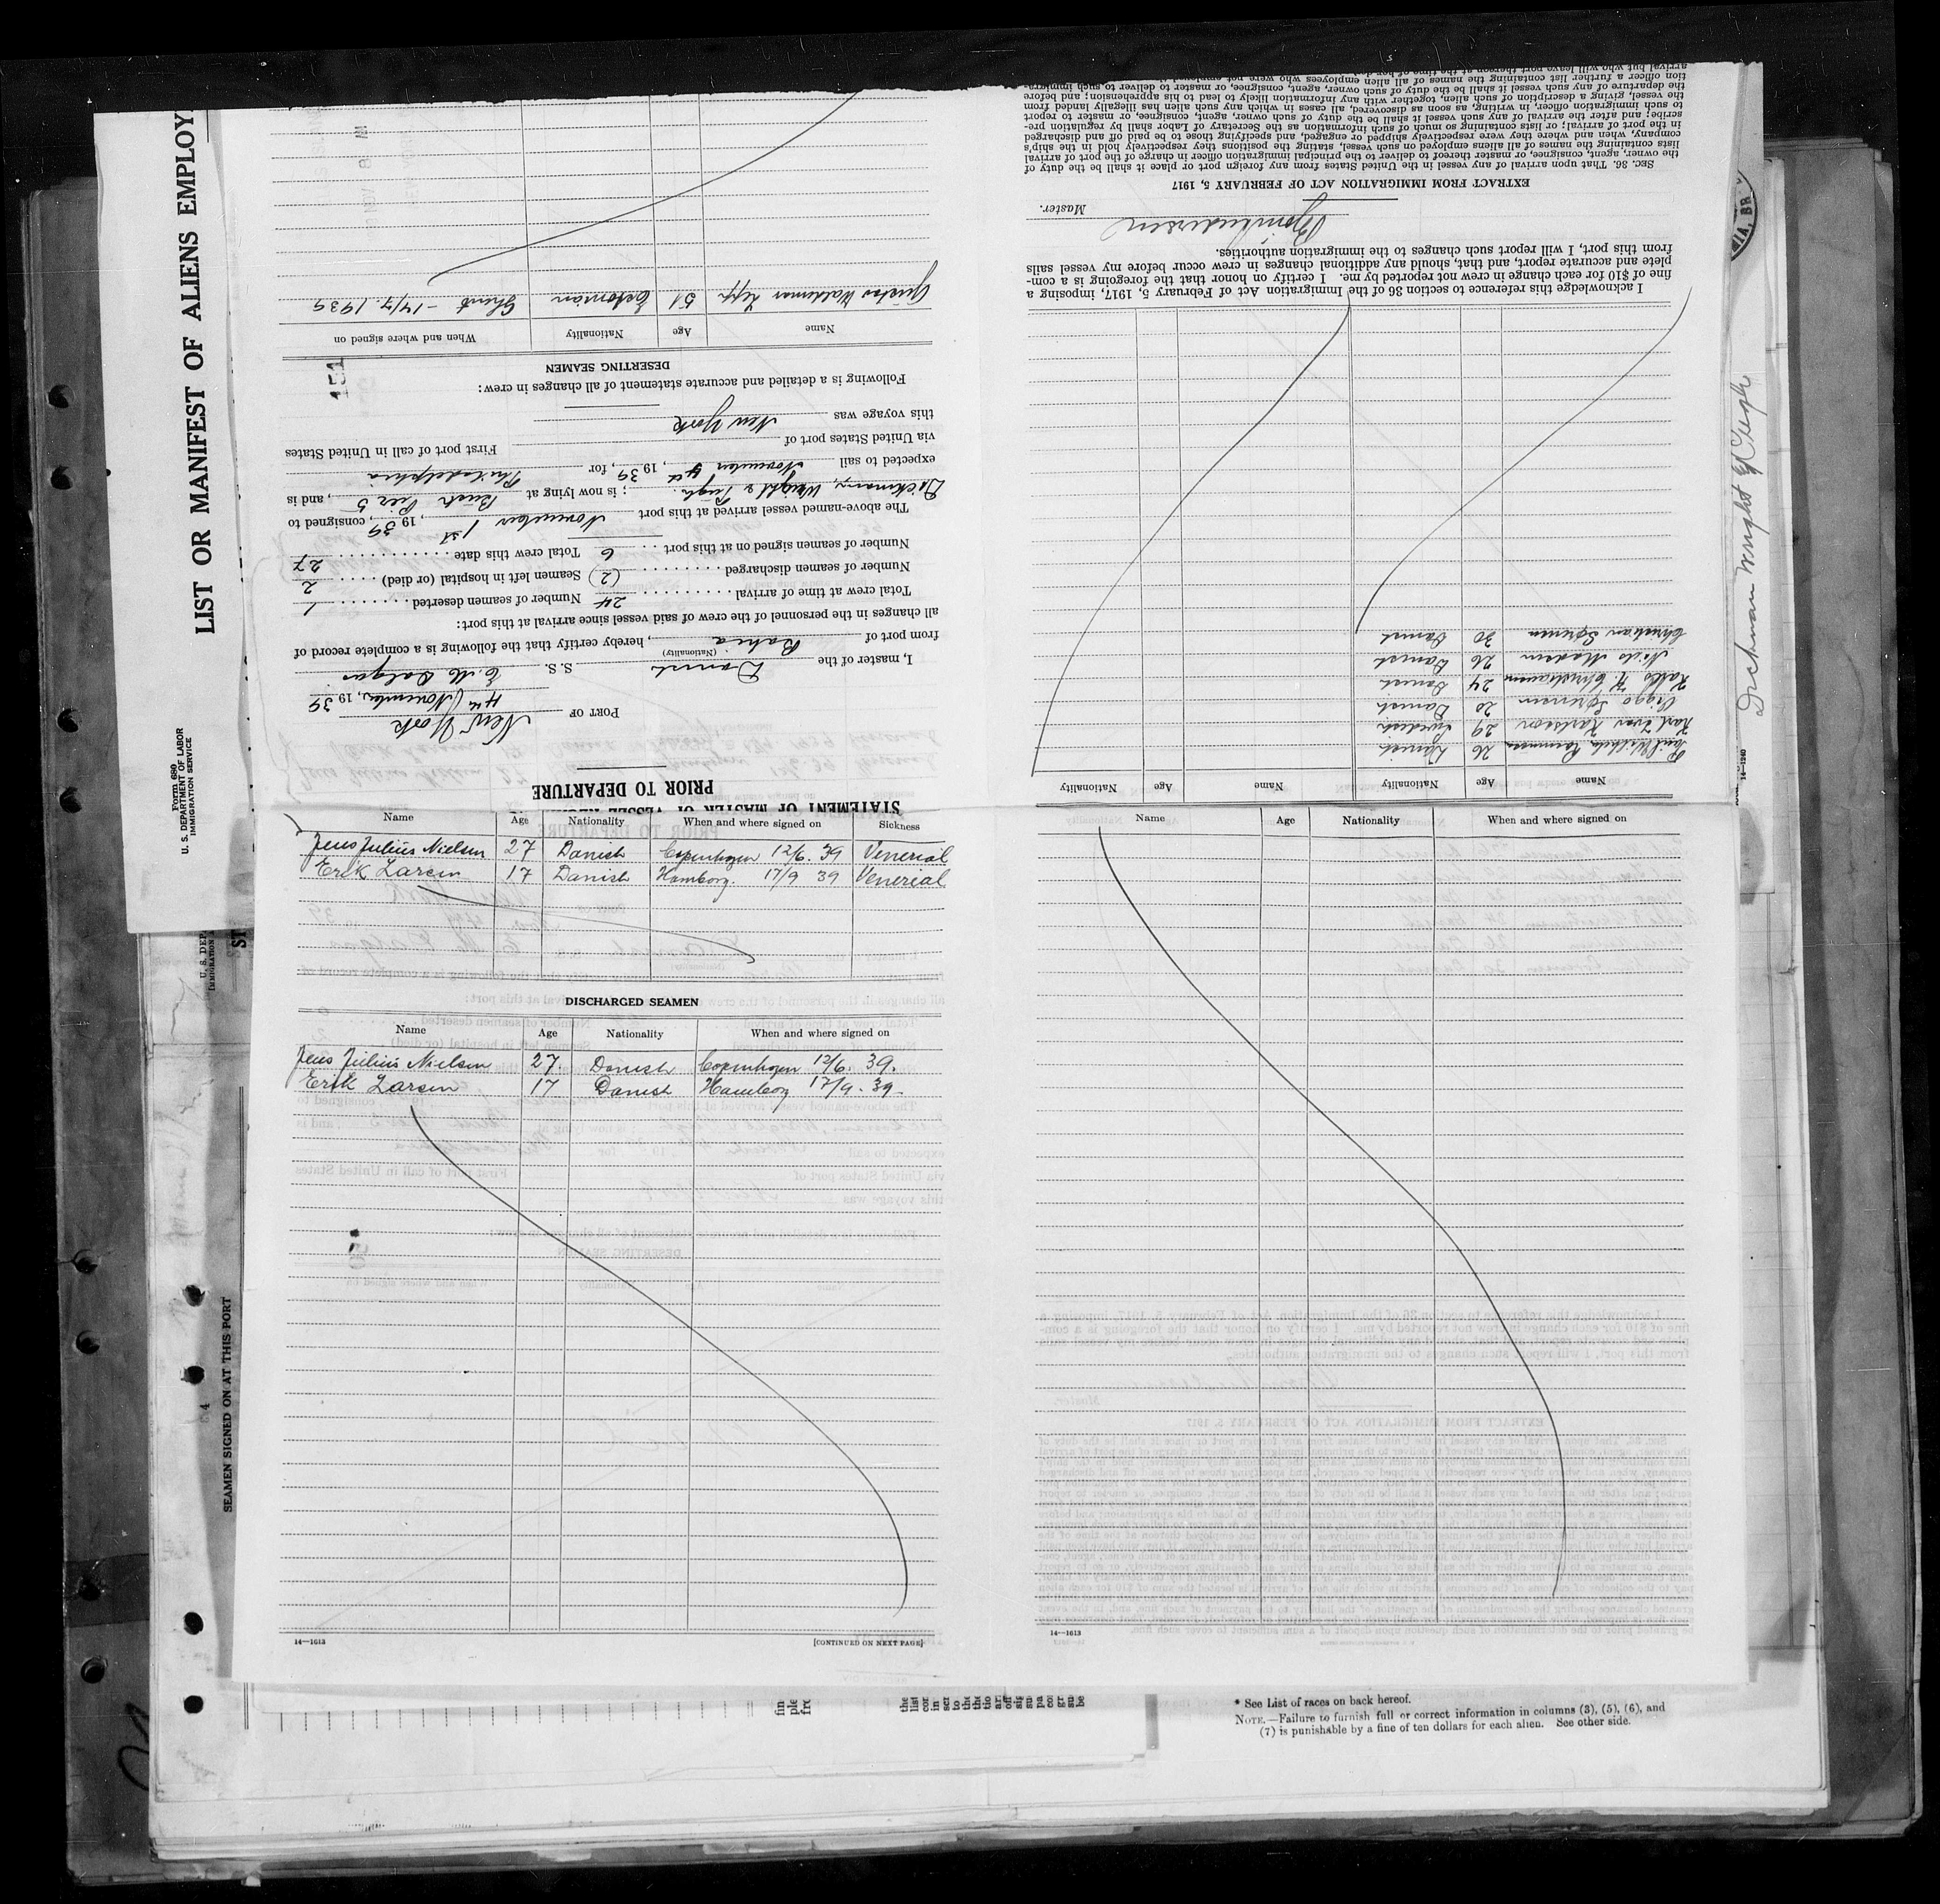 LIST OR MANIFEST OF ALIENS EMPLOY
Form 680
U. S. DEPARTMENT OF LABOR
IMMIGRATION SERVICE
STATEMENT OF MASTER OF VESSEL
PRIOR TO DEPARTURE
PORT OF New York
4th November, 1939
I, master of the Danish S. S. E. M. Dalgas
(Nationality)
from port of Bahia, hereby certify that the following is a complete record of
all changes in the personnel of the crew of said vessel since arrival at this port:
Total crew at time of arrival 24 Number of seamen deserted 1
Number of seamen discharged (2) Seamen left in hospital (or died) 2
Number of seamen signed on at this port 6 Total crew this date 27
The above-named vessel arrived at this port November 1st, 1939, consigned to
Dichmann, Wright & Pugh; is now lying at Bush Pier 5, and is
expected to sail November 4th, 1939, for Philadelphia
via United States port of First port of call in United States
this voyage was New York
Following is a detailed and accurate statement of all changes in crew:
DESERTING SEAMEN
151
Name Age Nationality When and where signed on
Gustav Waldemar Lepp 51 Estonian Ghent - 14/7 1939
Name Age Nationality When and where signed on Sickness
Jens Julius Nielsen 27 Danish Copenhagen 12/6. 39 Venerial
Erik Larsen 17 Danish Hamborg. 17/9 39 Venerial
DISCHARGED SEAMEN
Name Age Nationality When and where signed on
Jens Julius Nielsen 27. Danish Copenhagen 12/6. 39.
Erik Larsen 17 Danish Hamborg 17/9. 39.
14—1613
[CONTINUED ON NEXT PAGE]
SEAMEN SIGNED ON AT THIS PORT
Name Age Nationality Name Age Nationality
Poul Wilhelm Rasmussen 26 Danish
Karl Ivar Karlsson 29 Swedish
Viggo Sørensen 20 Danish
Karlo K. Christensen 24 Danish
Niels Madsen 26 Danish
Christian Sørensen 30 Danish
I acknowledge this reference to section 36 of the Immigration Act of February 5, 1917, imposing a
fine of $10 for each change in crew not reported by me. I certify on honor that the foregoing is a com-
plete and accurate report, and that, should any additional changes in crew occur before my vessel sails
from this port, I will report such changes to the immigration authorities.
Master.
EXTRACT FROM IMMIGRATION ACT OF FEBRUARY 5, 1917
Sec. 36. That upon arrival of any vessel in the United States from any foreign port or place it shall be the duty of
the owner, agent, consignee, or master thereof to deliver to the principal immigration officer in charge of the port of arrival
lists containing the names of all aliens employed on such vessel, stating the positions they respectively hold in the ship's
company, when and where they were respectively shipped or engaged, and specifying those to be paid off and discharged
in the port of arrival; or lists containing so much of such information as the Secretary of Labor shall by regulation pre-
scribe; and after the arrival of any such vessel it shall be the duty of such owner, agent, consignee, or master to report
to such immigration officer, in writing, as soon as discovered, all cases in which any such alien has illegally landed from
the vessel, giving a description of such alien, together with any information likely to lead to his apprehension; and before
the departure of any such vessel it shall be the duty of such owner, agent, consignee, or master to deliver to such immigra-
tion officer a further list containing the names of all alien employees who were not employed
arrival but who will leave port thereon at the time of her
Name Age Nationality When and where signed on
14—1613
Dichmann Wright & Pugh
14-1240
* See List of races on back hereof.
NOTE.—Failure to furnish full or correct information in columns (3), (5), (6), and
(7) is punishable by a fine of ten dollars for each alien. See other side.